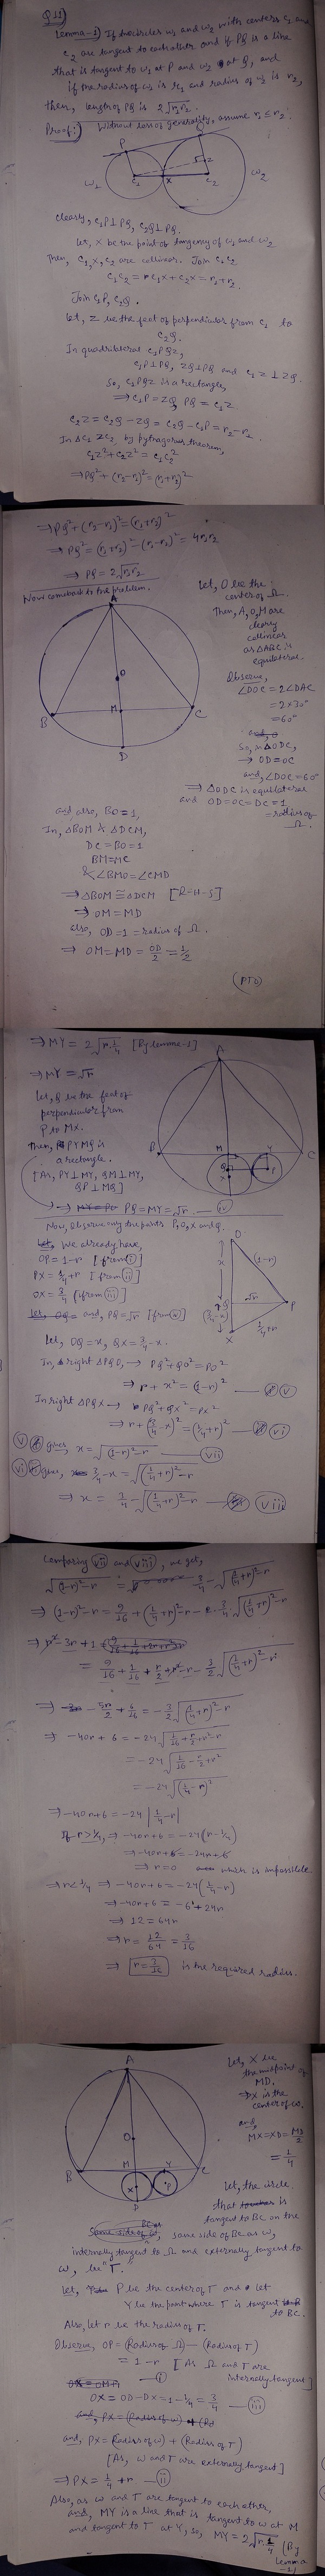 Q11)
Lemma-1) If two circles ω1 and ω2 with centers C1 and
C2 are tangent to each other and if PQ is a line
that is tangent to ω1 at P and ω2 at Q, and
if the radius of ω1 is r1 and radius of ω2 is r2,
then, length of PQ is 2√r1r2.
Proof:) Without loss of generality, assume r1 ≤ r2.
P
Q
Z
ω1
C1
X
C2
ω2
Clearly, C1P⊥PQ, C2Q⊥PQ.
Let, X be the point of tangency of ω1 and ω2
Then, C1, X, C2 are collinear. Join C1C2
C1C2 = C1X + C2X = r1+r2.
Join C1P, C2Q.
Let, Z be the feet of perpendicular from C1 to
C2Q.
In quadrilateral C1PQZ,
C1P⊥PQ, ZQ⊥PQ and C1Z⊥ZQ.
So, C1PQZ is a rectangle,
⇒ C1P = ZQ, PQ = C1Z
C2Z = C2Q - ZQ = C2Q - C1P = r2 - r1.
In ΔC1ZC2, by pythagorus theorem,
C1Z² + C2Z² = C1C2²
⇒ PQ² + (r2-r1)² = (r1+r2)²
⇒ PQ² + (r2-r1)² = (r1+r2)²
⇒ PQ² = (r1+r2)² - (r1-r2)² = 4r1r2
⇒ PQ = 2√r1r2
Now come back to the problem.
A
O
B
M
C
D
Let, O be the
center of Ω.
Then, A, O, M are
clearly
collinear
as ΔABC is
equilateral.
Observe,
∠DOC = 2∠DAC
= 2×30°
= 60°
So, in ΔODC,
→ OD = OC
and, ∠DOC = 60°
⇒ ΔODC is equilateral
and OD = OC = DC = 1
= radius of
Ω.
and also, BO = 1,
In, ΔBOM & ΔDCM,
DC = BO = 1
BM = MC
& ∠BMO = ∠CMD
⇒ ΔBOM ≅ ΔDCM [R-H-S]
⇒ OM = MD
also, OD = 1 = radius of Ω.
⇒ OM = MD = OD/2 = 1/2
(PTO)
⇒ MY = 2√r.1/4 [By lemma-1]
⇒ MY = √r
Let, Q be the feet of
perpendicular from
P to MX.
Then, PYMQ is
a rectangle.
[As, PY⊥MY, QM⊥MY,
QP⊥MQ]
A
B
M
Y
C
Q
P
X
→ PQ = MY = √r — iv
Now, observe only the points P, O, X and Q.
We already have,
OP = 1-r [from i]
PX = 1/4 + r [from ii]
OX = 3/4 (from iii)
and, PQ = √r [from iv]
O
x
(1-r)
Q
√r
P
(3/4-x)
1/4+r
X
Let, OQ = x, QX = 3/4 - x.
In, right ΔPQO, → PQ² + QO² = PO²
⇒ r + x² = (1-r)² — v
In right ΔPQX → PQ² + QX² = PX²
⇒ r + (3/4 - x)² = (1/4 + r)² — vi
v gives, x = √(1-r)² - r — vii
vi gives, 3/4 - x = √(1/4 + r)² - r
⇒ x = 3/4 - √(1/4 + r)² - r — viii
Comparing vii and viii, we get,
√(1-r)² - r = 3/4 - √(1/4 + r)² - r
⇒ (1-r)² - r = 9/16 + (1/4 + r)² - r - 2·3/4·√(1/4 + r)² - r
⇒ r² - 3r + 1
= 9/16 + 1/16 + r/2 + r² - r - 3/2 √(1/4 + r)² - r
⇒ -5r/2 + 6/16 = -3/2 √(1/4 + r)² - r
⇒ -40r + 6 = -24 √1/16 + r/2 + r² - r
= -24 √1/16 - r/2 + r²
= -24 √(1/4 - r)²
⇒ -40r + 6 = -24 |1/4 - r|
If r > 1/4, ⇒ -40r + 6 = -24(r - 1/4)
⇒ -40r + 6 = -24r + 6
⇒ r = 0 which is impossible.
⇒ r < 1/4 ⇒ -40r + 6 = -24(1/4 - r)
⇒ -40r + 6 = -6 + 24r
⇒ 12 = 64r
⇒ r = 12/64 = 3/16
⇒ r = 3/16 is the required radius.
A
O
B
M
Y
C
X
P
D
Let, X be
the midpoint of
MD.
⇒ X is the
center of ω.
and,
MX = XD = MD/2
= 1/4
Let, the circle
that is
tangent to BC on the
same side of BC as ω,
internally tangent to Ω and externally tangent to
ω, be "T."
Let, P be the center of T and let
Y be the point where T is tangent
to BC.
Also, let r be the radius of T.
Observe, OP = (Radius of Ω) - (Radius of T)
= 1 - r [As Ω and T are
internally tangent]
— i
OX = OD - DX = 1 - 1/4 = 3/4 — iii
and, PX = (Radius of ω) + (Radius of T)
[As, ω and T are externally tangent]
⇒ PX = 1/4 + r — ii
Also, as ω and T are tangent to each other,
and, MY is a line that is tangent to ω at M
and tangent to T at Y, so, MY = 2√r.1/4 (By
Lemma
-1)